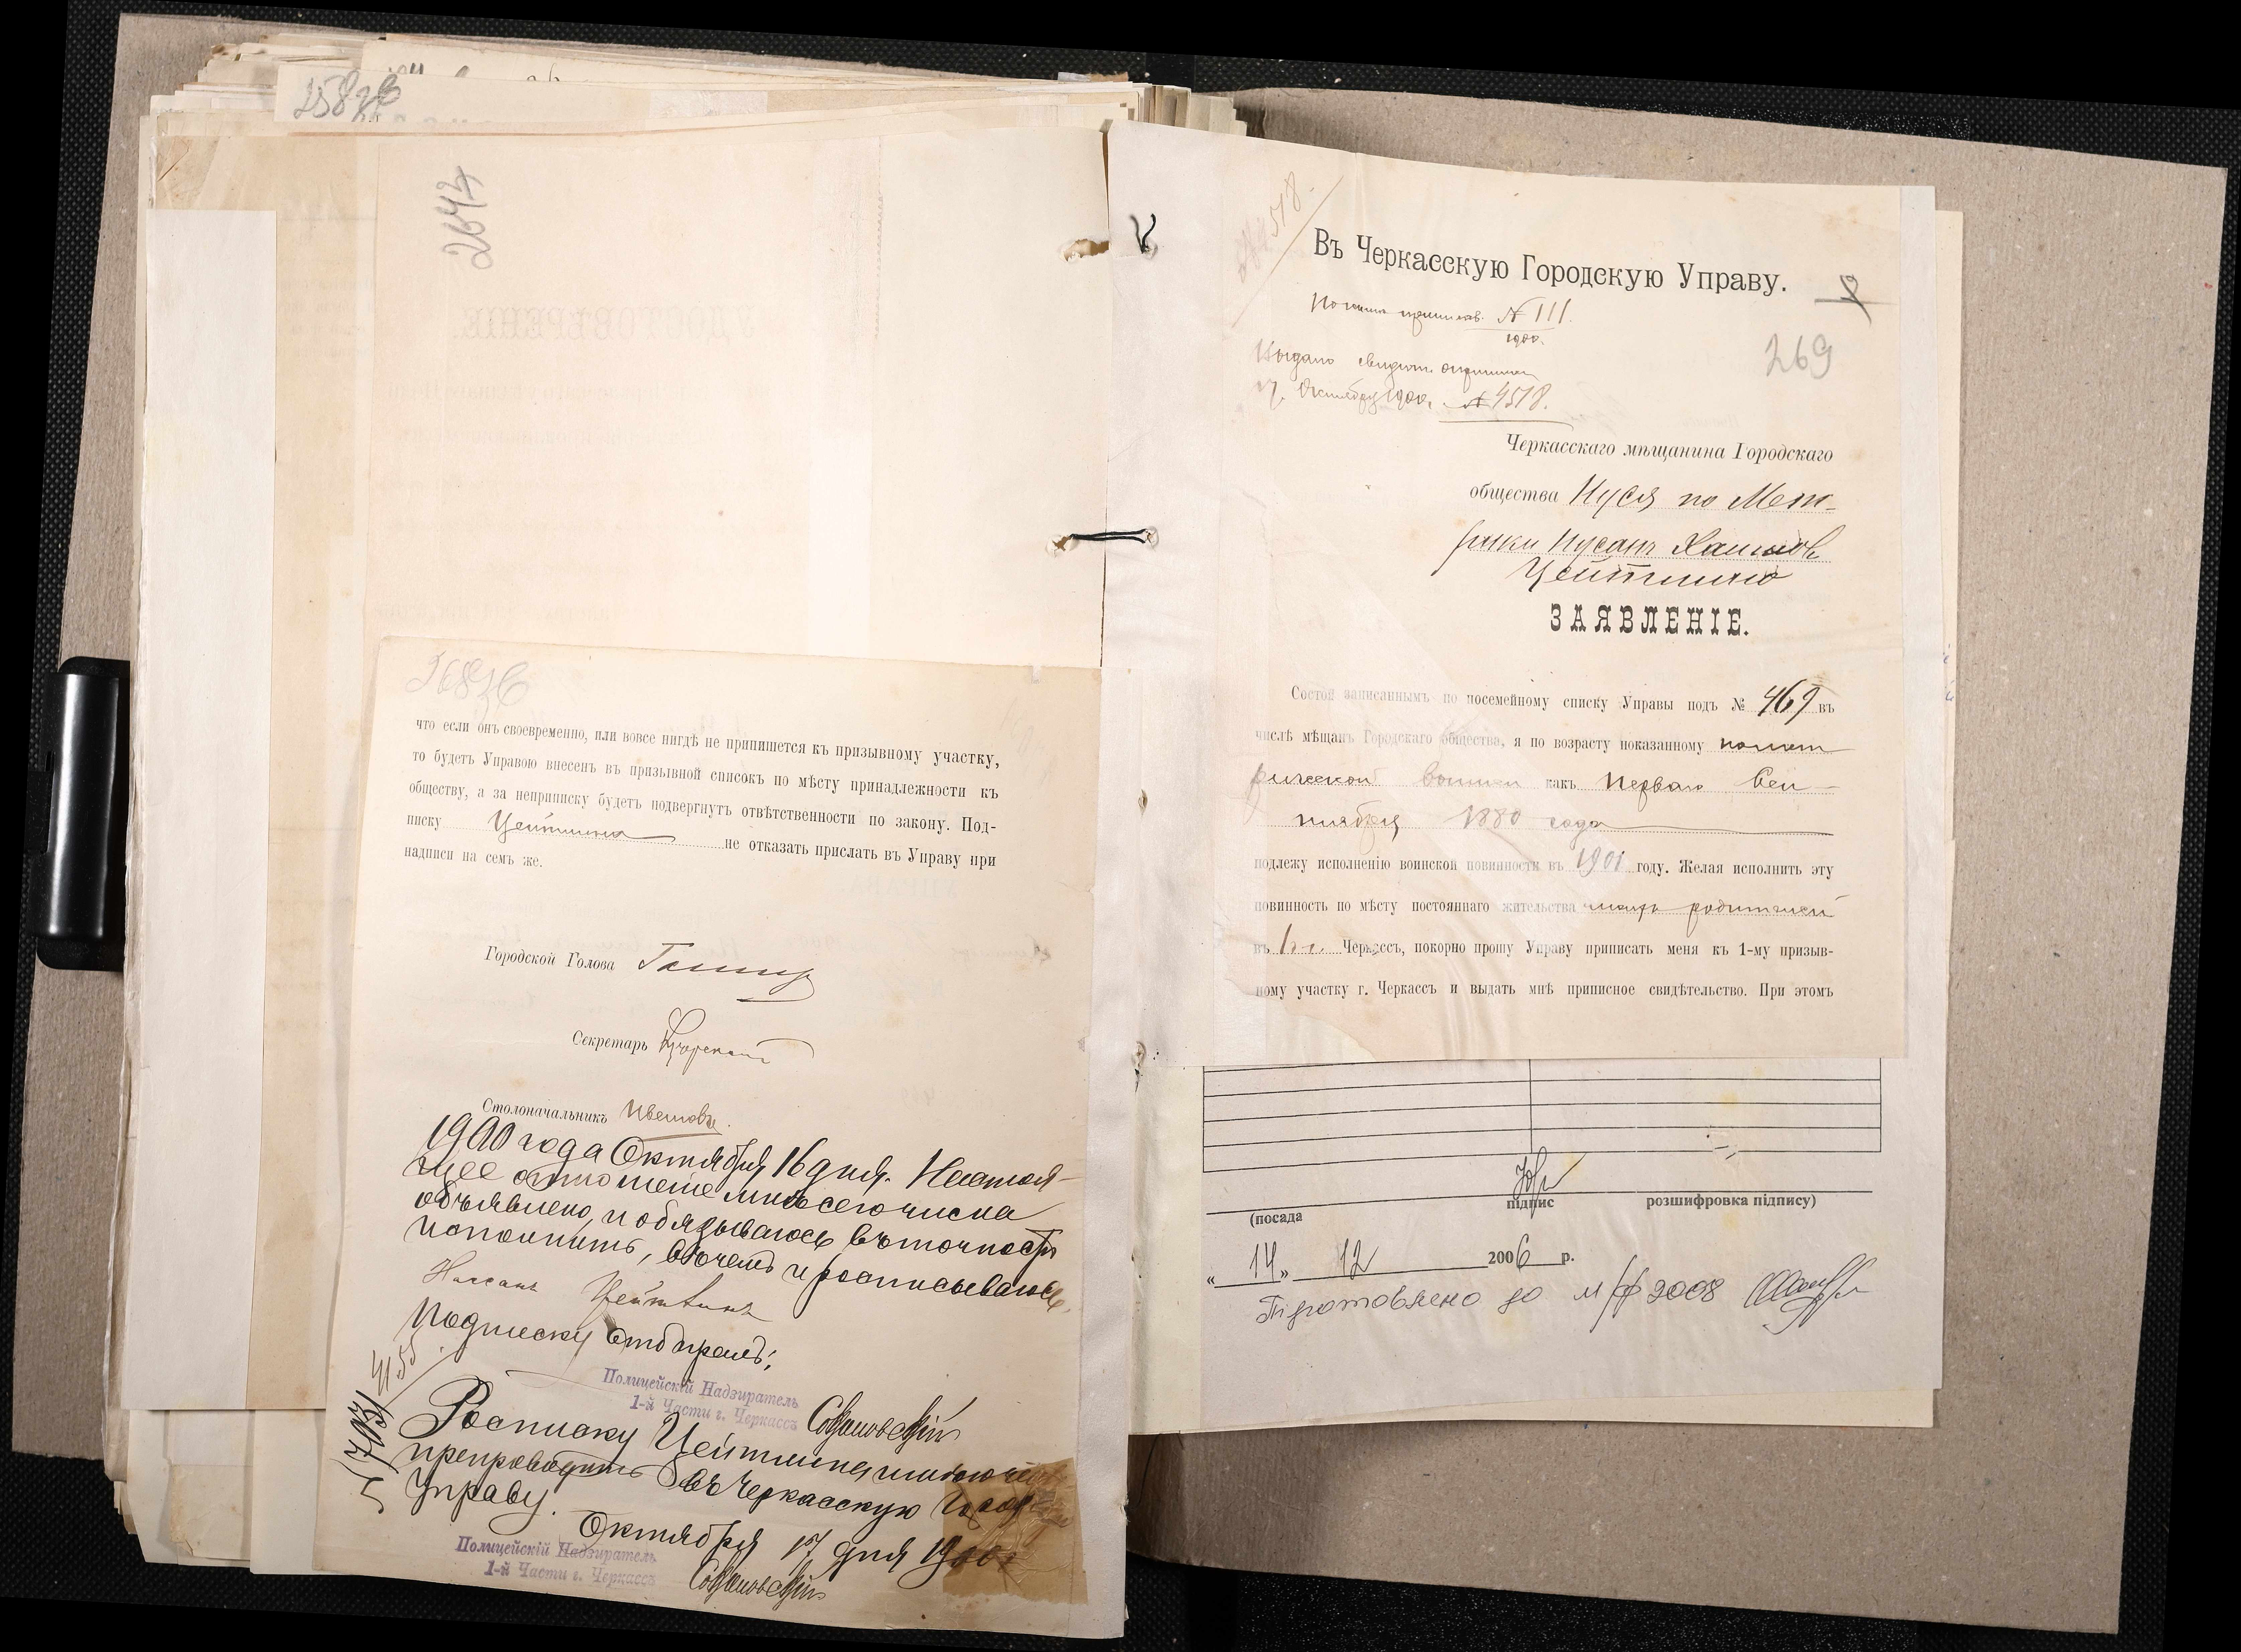 2583б
2644
2683б
что если онъ своевременно, или вовсе нигдѣ не припишется къ призывному участку,
то будетъ Управою внесенъ въ призывной списокъ по мѣсту принадлежности къ
обществу, а за неприписку будетъ подвергнутъ отвѣтственности по закону. Под-
писку Цейтлина не отказать прислать въ Управу при
надписи на семъ же.
Городской Голова
Секретарь
Столоначальникъ
1900 года Октября 16 дня. Настоя-
щее отношеніе мнѣ сего числа
объявлено, и обязываюсь въ точности
исполнить, въ чемъ и росписываюсь.
Нассанъ Цейтлинъ
Подписку отбиралъ:
Полицейскій Надзиратель
1-й Части г. Черкассъ
Росписку Цейтлина
препроводить въ Черкасскую
Управу.
Октября 17 дня 1900 г
Полицейскій Надзиратель
1-й Части г. Черкассъ
Въ Черкасскую Городскую Управу.
№ 111
1900.
269
Выдано свидѣт. о припискѣ
17 Октября 1900 г. № 4518.
Черкасскаго мѣщанина Городскаго
общества Нуся по Мет-
рики Нусанъ Хаимов
Цейтлина
ЗАЯВЛЕНІЕ.
Состоя записаннымъ по посемейному списку Управы подъ № 469 въ
числѣ мѣщанъ Городскаго общества, я по возрасту показанному по мет
рической выписи какъ перваго Сен-
тября 1880 года
подлежу исполненію воинской повинности въ 1901 году. Желая исполнить эту
повинность по мѣсту постояннаго жительства моихъ родителей
въ г. Черкассъ, покорно прошу Управу приписать меня къ 1-му призыв-
ному участку г. Черкассъ и выдать мнѣ приписное свидѣтельство. При этомъ
(посада
підпис
розшифровка підпису)
« 14 » 12 2006 р.
Підготовлено до м/ф 2008